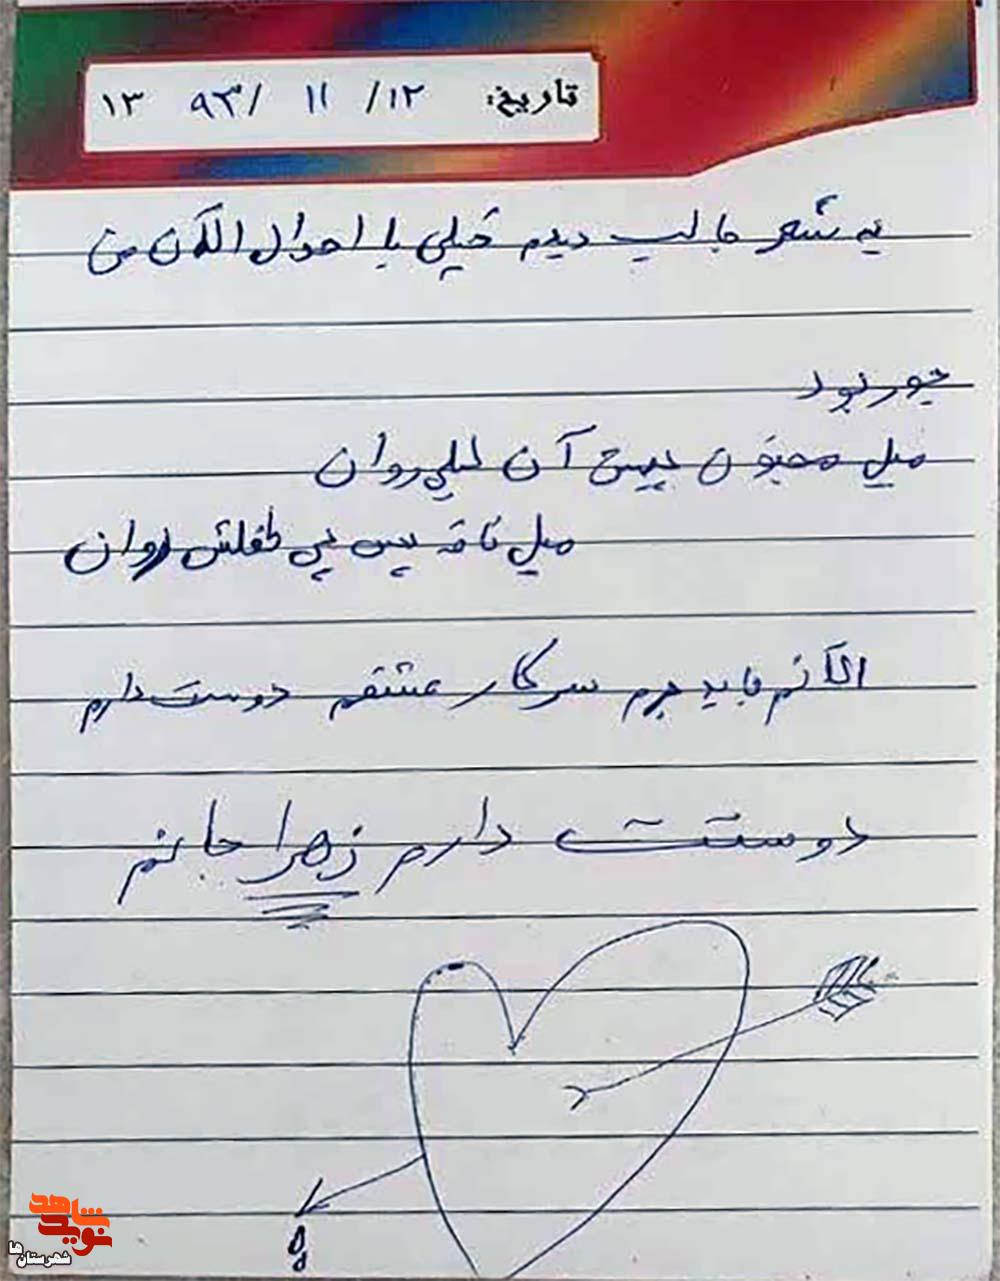 تاریخ: ۱۲/ ۱۱ /۹۳ ۱۳
یه شعر جالب دیدم خیلی با احوال الآن من
جور بود
میل مجنون پیش آن لیلی روان
میل ناقه پس پی طفلش روان
الآنم باید برم سر کار عشقم دوست دارم
دوستت دارم زهرا جانم
نوید شاهد
شهرستان‌ها